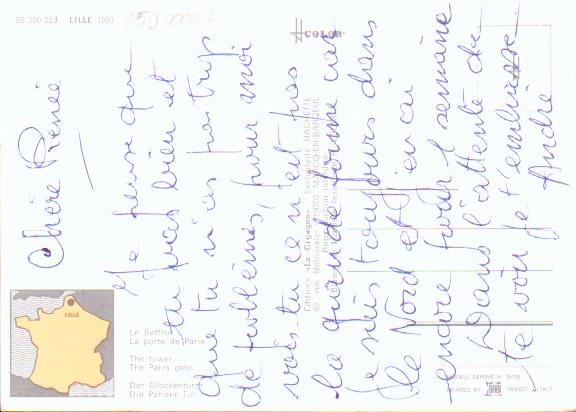 59.350.253 - LILLE (59)
COLOR
Chère Renée
Je pense que
tu vas bien et
que tu n'as pas trop
de problèmes, pour moi
vois-tu ce n'est pas
la grande forme car
je suis toujours dans
le Nord et j'en ai
encore pour 1 semaine
Dans l'attente de
te voir je t'embrasse
André
LILLE
Le Beffroi
La porte de Paris
The tower
The Paris gate
Der Glockenturm
Die Pariser Tur
Editions «La Cigogne»
HACHETTE
92, rue Nationale
59702 MARCQ-EN-BAROEUL
MODELE DEPOSE
PRINTED BY
TRIESTE
ITALY